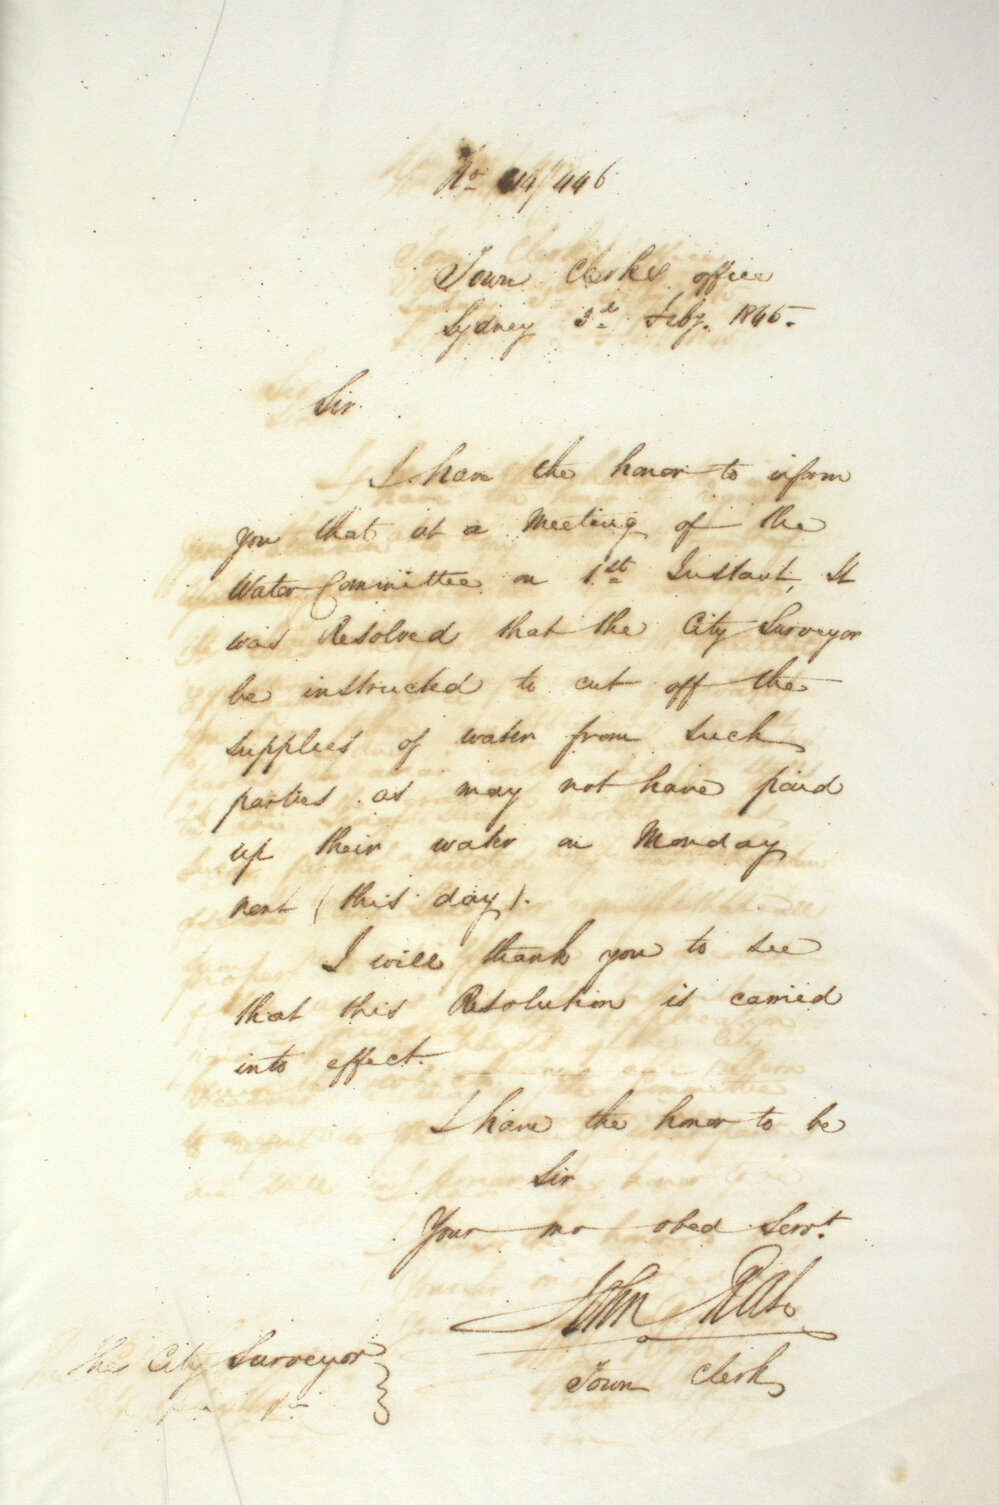 No 44/446
Town Clerks office
Sydney 3d Feby. 1845.
Sir
I have the honor to inform
you that at a Meeting of the
Water Committee on 1st Instant, It
was Resolved that the City Surveyor
be instructed to cut off the
supplies of water from such
parties as may not have paid
up their water on Monday
next (this day).
I will thank you to see
that this Resolution is carried
into effect.
I have the honor to be
Sir
Your mo obed Servt.
John Rae
Town Clerk
The City Surveyor